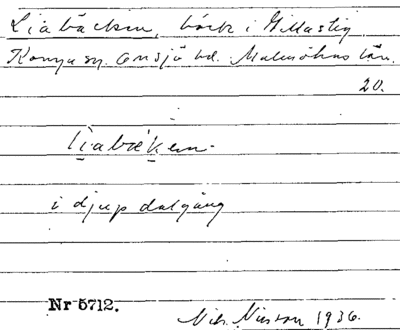 Liabäcken, bäck i Gillastig,
Konga sn. Onsjö hd. Malmöhus län.
20.
liabæken.
i djup dalgång
Nr 5712.
Nils Nilsson 1936.